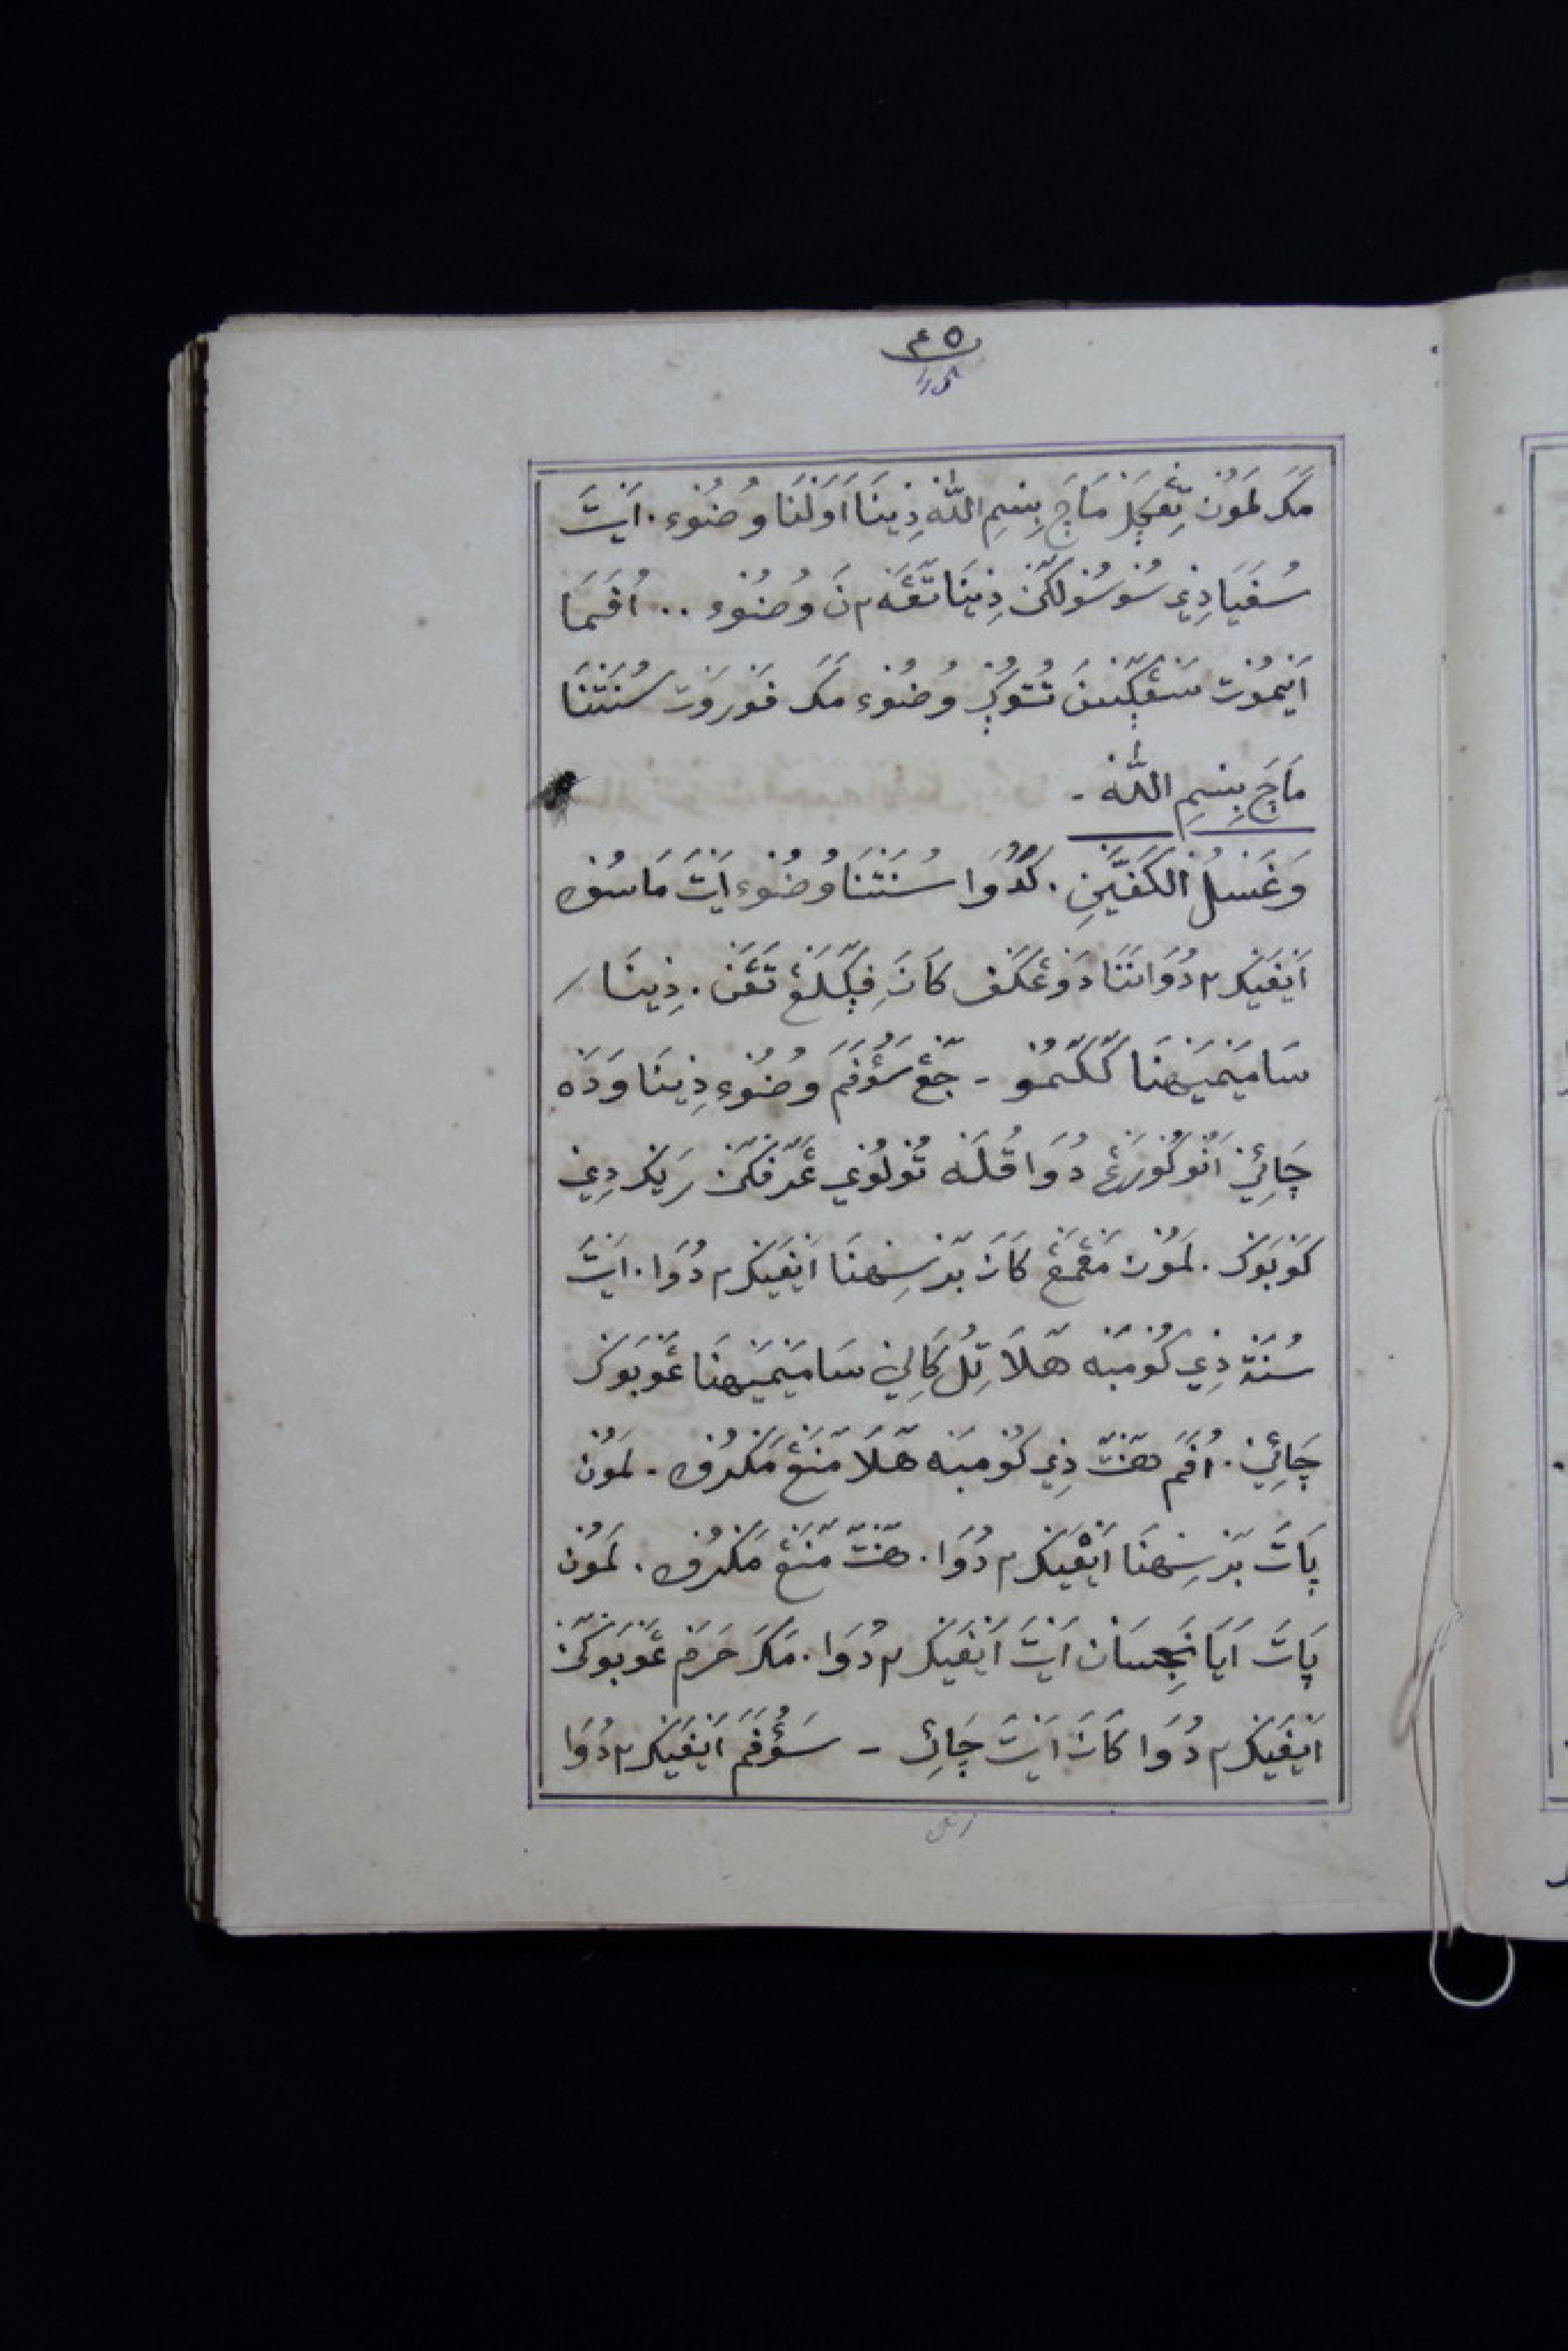 ٤٥
مَكَ لَمَوُنْ تِڠْڮَلْ مَاچَ بِسْمِ اللّٰهْ دِينَا اَوَلْنَا وُضُوْء. اَيْتَ
سُفَيَا دِيْ سُوْسُوْلَكٓنْ دِيْنَا تٓڠَه٢نَ وُضُوْء .. اُفَمَا
اَيْمُوْت سٓڠڮٓسْنَ تُتَوْكْ وُضُوْء مَكَ فَوْرَوْت سُنَتْنَا
مَاچَ بِسْمِ اللّٰهْ -
وَغَسْلُ الْكَفَّيْنِ. كَدُوَا سُنَتْنَا وُضُوْء اَيْتَ مَاسُوْه
اَيْفَيْك٢ دُوَانَنَا دَوْعَكَفْ كَانَ فِڮٓلَڠْ تَڠَنْ. دِينَا
سَامَيْمَيْهْنَا كٓكٓمُوْ - جٓڠْ سَؤُفَمَ وُضُوْء دِيْنَا وَدَه
چَائِيْ اَنُوْ كُوْرَڠْ دُوَا قُلَه تُوْلُوْي عٓدٓفْكٓنْ رَيْك دِيْ
كَوْبَوْك. لَمَوُنْ مَڠْمَڠْ كَانَ بٓرْسِهْنَا اَيْفَيْك٢ دُوَا. اَيْتَ
سُنَةْ دِيْ كُوْمْبَه هٓلَا تِلُ كَالِيْ سَامَيْمَيْهْنَا عَوْبَوْك
چَائِيْ. اُفَمَ هٓنْتٓ دِيْ كُوْمْبَه هٓلَا مٓنَڠْ مَكْرُوْه. لَمَوُنْ
ڽَاتَ بٓرْسِهْنَا اَيْفَيْك٢ دُوَا. هٓنْتٓ مٓنَڠْ مَكْرُوْه. لَمَوُنْ
ڽَاتَ اَيَا نَجِسَانْ اَيْتَ اَيْفَيْك٢ دُوَا. مَكَ حَرَمْ عَوْبَوْكٓنْ
اَيْفَيْك٢ دُوَا كَانَ اَيْتَ چَائِ - سَؤُفَمَ اَيْفَيْك٢ دُوَا